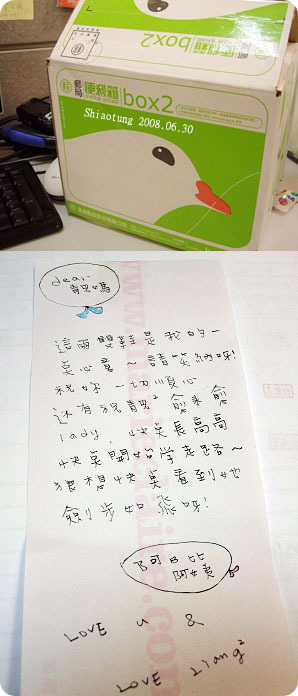 郵局
便利箱
box2
郵局 便利箱 box2
Shiaotung 2008.06.30
dear
媽
這兩雙鞋是我的一
奌心意~請笑納呀!
祝妳一切順心
還有祝 愈來愈
lady, 快奌長高高
快奌開始學走路~
很想快奌看到她
步如飛呀!
LOVE u &
LOVE Liang²